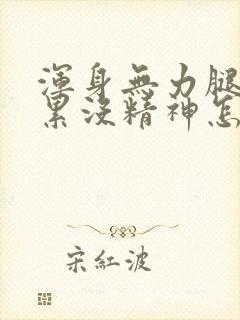 渾身無力腿
累沒精神怎
宋紅波